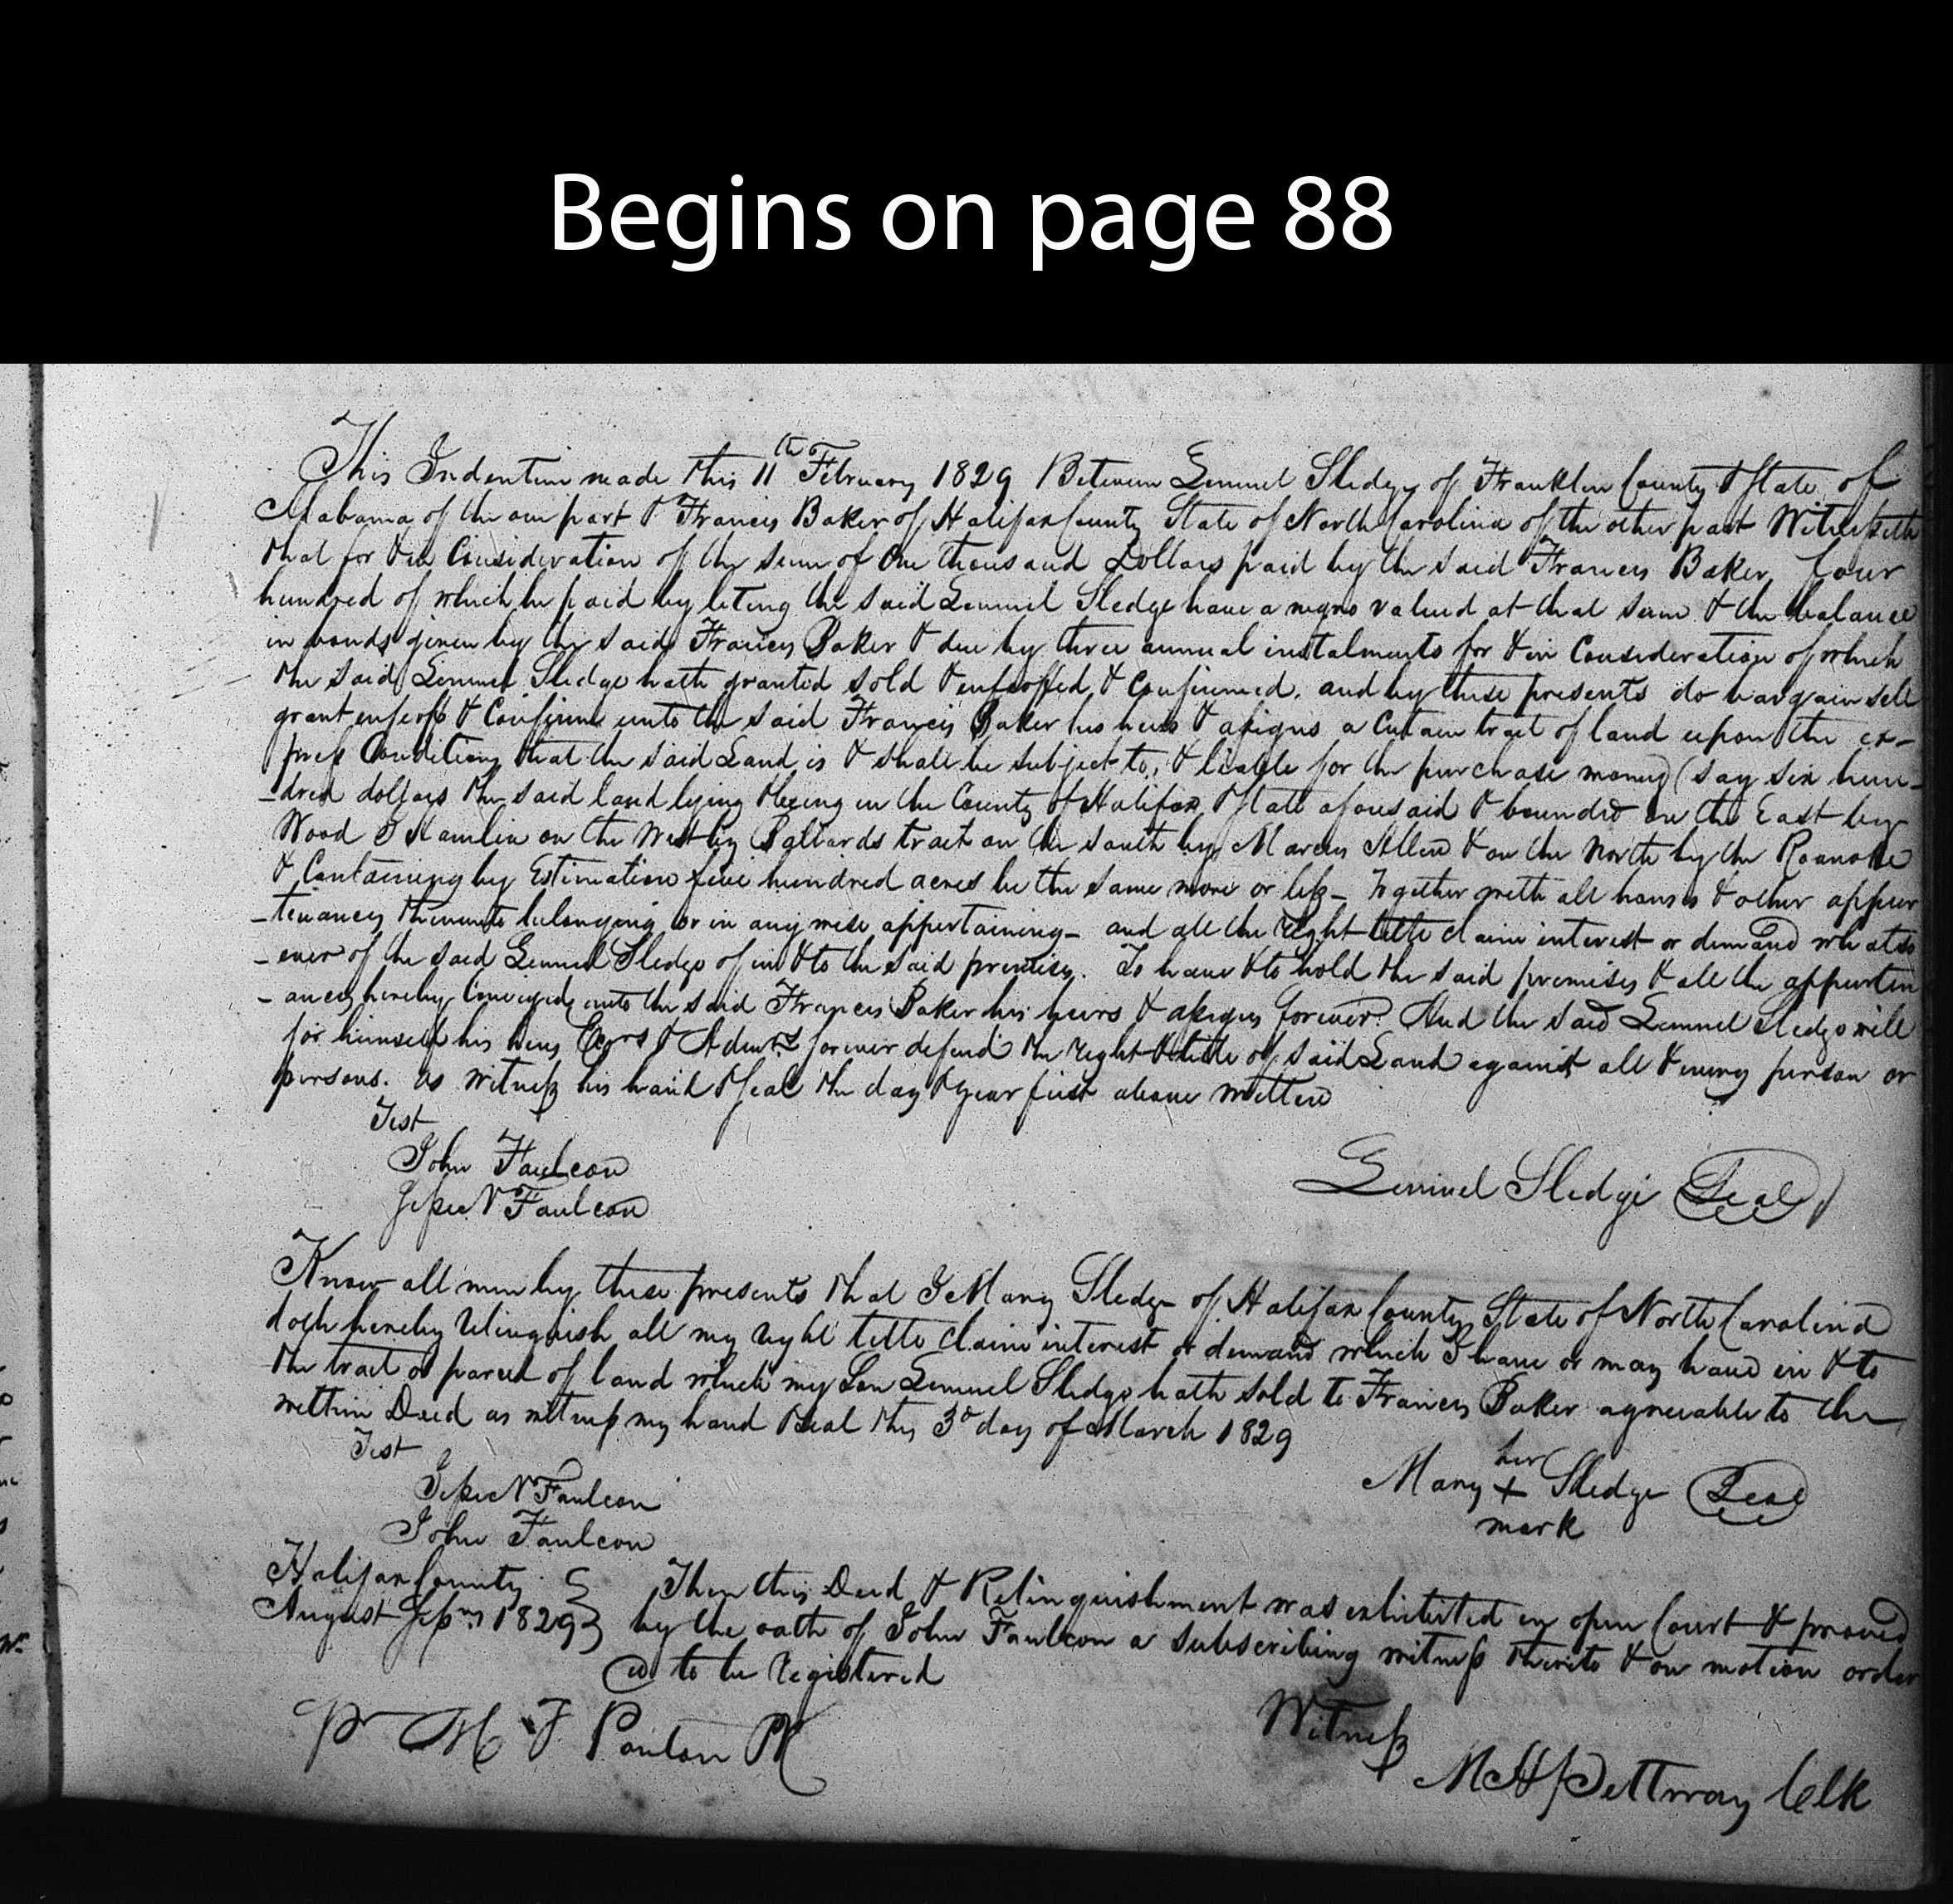 Begins on page 88
This Indenture made this 11th February 1829 Between Lemuel Sledge of Franklin County & State of
Alabama of the one part & Francis Baker of Halifax County State of North Carolina of the other part Witnesseth
that for & in Consideration of the sum of One thousand Dollars paid by the said Francis Baker, four
hundred of which he paid by leting the said Lemuel Sledge have a negro valued at that sum & the balance
in bonds given by the said Francis Baker & due by three annual instalments for & in Consideration of which
the said Lemuel Sledge hath granted sold & enfeoffed, & Confirmed, and by these presents do bargain sell
grant enfeoff & Confirm unto the said Francis Baker his heirs & assigns a Certain tract of land upon the ex-
press Condition that the said Land is & shall be subject to, & liable for the purchase money (say six hun-
-dred dollars the said land lying & being in the County of Halifax & State aforesaid & bounded on the East by
Wood J Hamlin on the West by Ballards tract on the south by Marcus Allen & on the North by the Roanoke
& Containing by Estimation five hundred acres be the same more or less - Together with all houses & other appur
-tenances thereunto belonging or in any wise appertaining - and all the right title claim interest or demand whatso
-ever of the said Lemuel Sledge of in & to the said premises. To have & to hold the said premises & all the appurten
-ances hereby Conveyed, unto the said Francis Baker his heirs & assigns forever. And the said Lemuel Sledge will
for himself his heirs Exrs & Admrs forever defend the right & title of said Land against all & every person or
persons. as witness his hand & Seal the day & year first above written
Test
John Faulcon
Jesse N Faulcon
Lemuel Sledge Seal
Know all men by these presents that I Mary Sledge of Halifax County State of North Carolina
doth hereby relinquish all my right title claim interest or demand which I have or may have in & to
the tract or parcel of land which my Son Lemuel Sledge hath sold to Francis Baker agreeable to the
within Deed as witness my hand & Seal this 3d day of March 1829
Test
Jesse N Faulcon
John Faulcon
her
Mary + Sledge Seal
mark
Halifax County
August Sessn 1829
Then this Deed & Relinquishment was exhibited in open Court & proved
by the oath of John Faulcon a subscribing witness thereto & on motion order
ed to be registered
Witness
pr M. F. Ponton PR
M H Pettway Clk